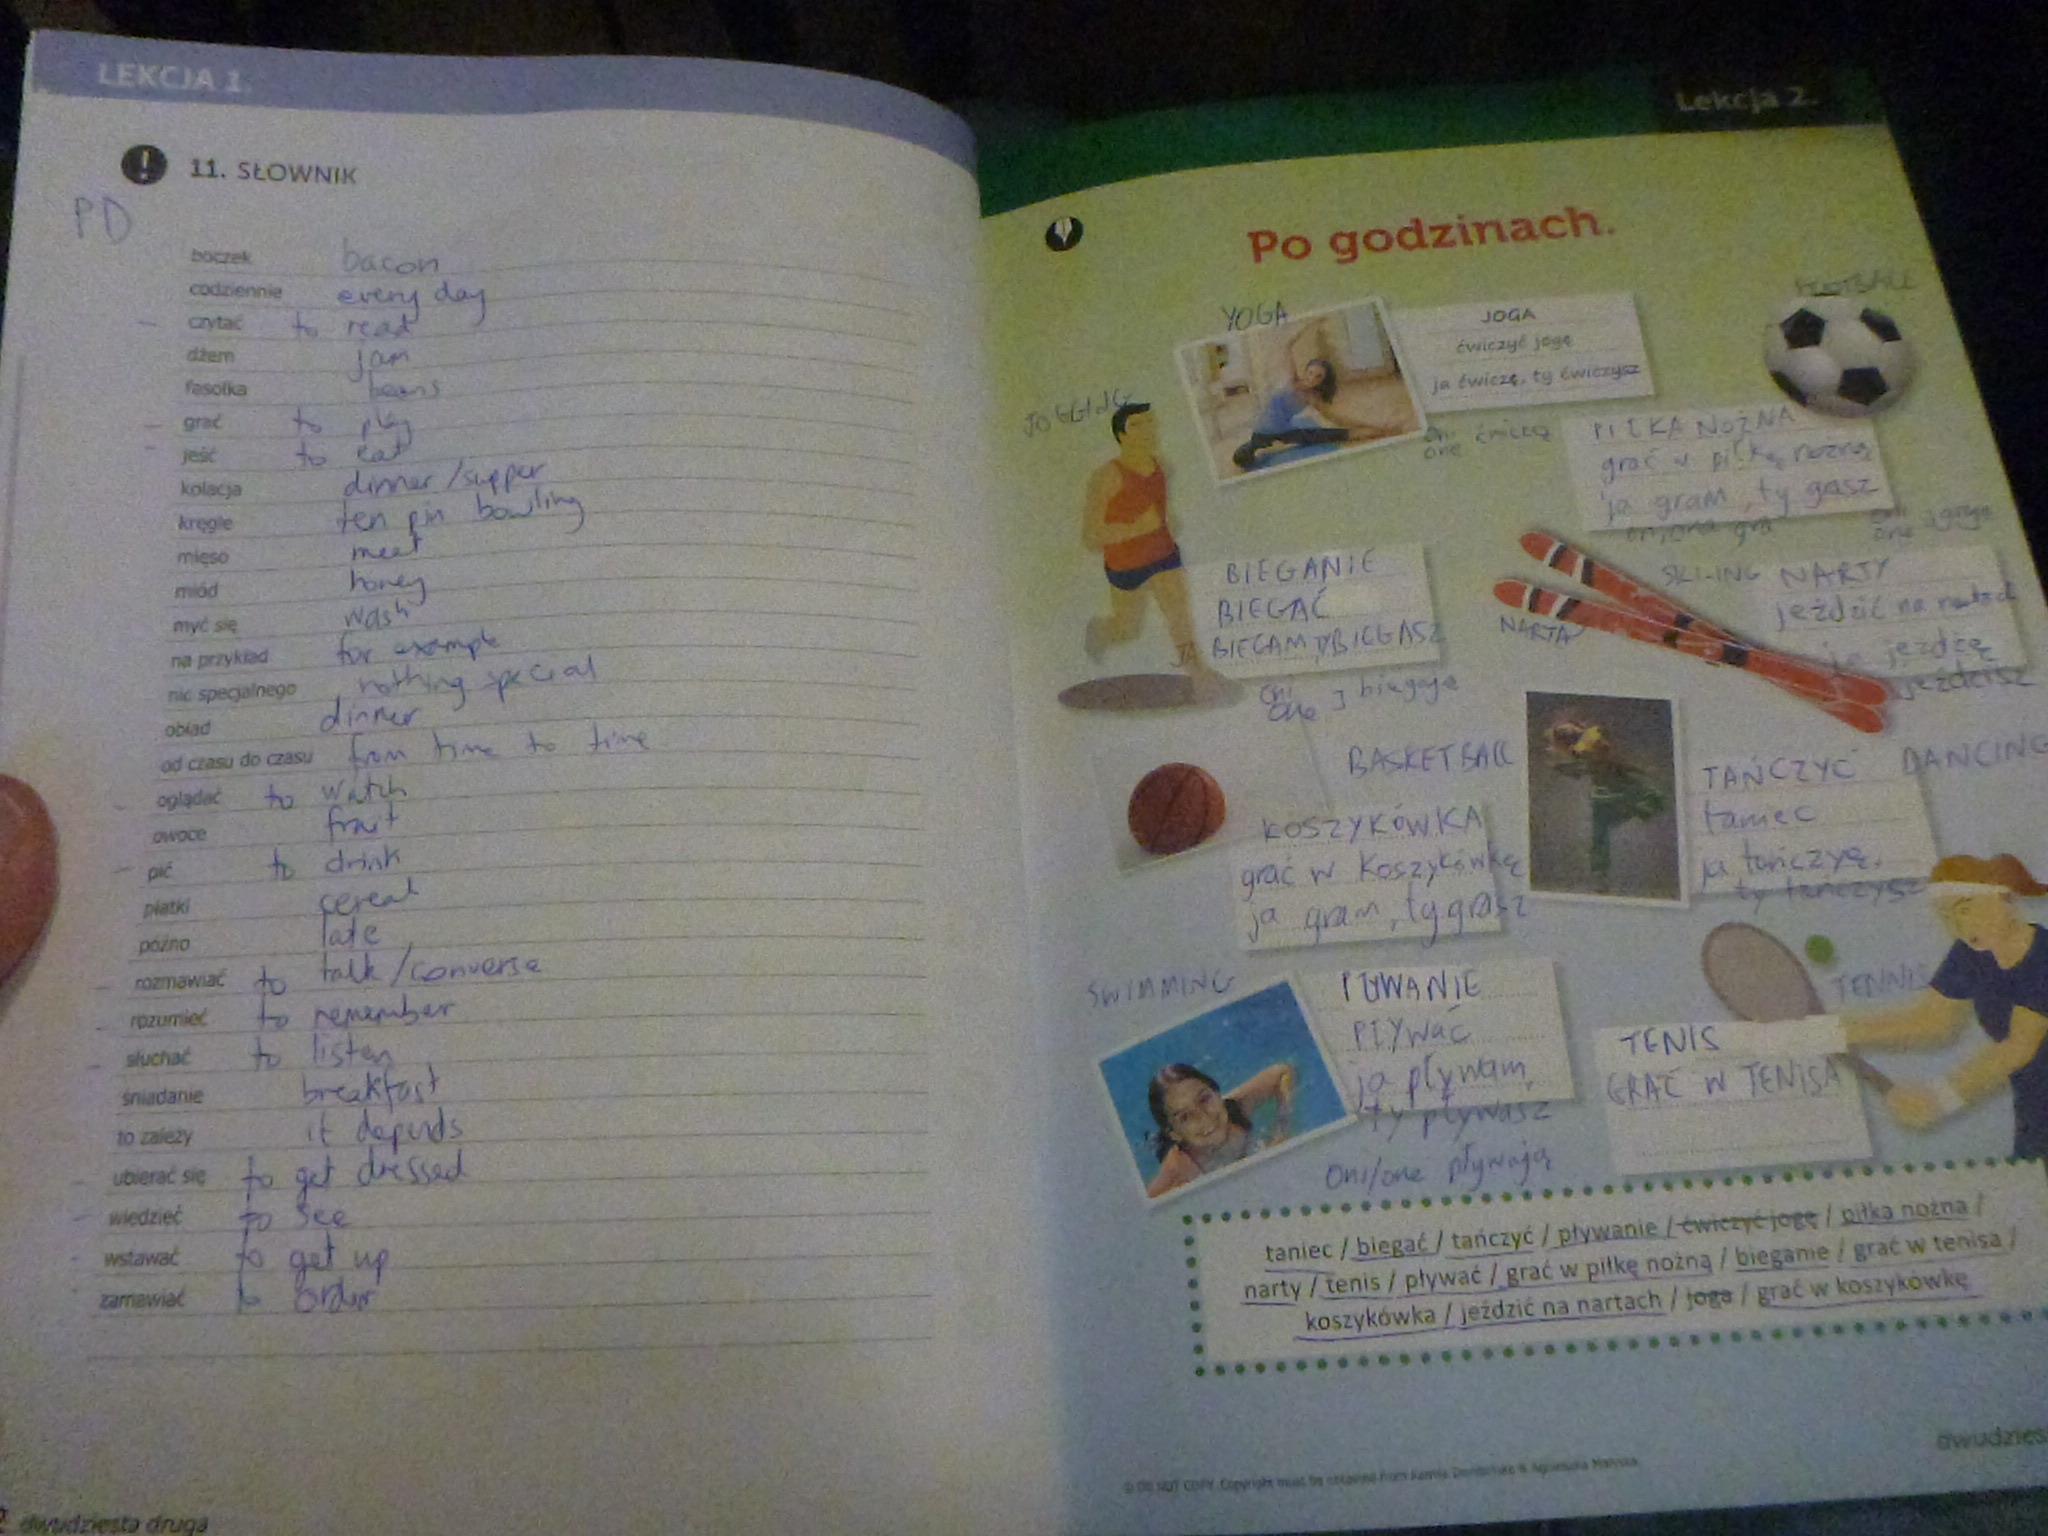 LEKCJA 1.
11. SŁOWNIK
PD
boczek bacon
codziennie every day
czytać to read
dżem jam
fasolka beans
grać to play
jeść to eat
kolacja dinner / supper
kręgle ten pin bowling
mięso meat
miód honey
myć się wash
na przykład for example
nic specjalnego nothing special
obiad dinner
od czasu do czasu from time to time
oglądać to watch
owoce fruit
pić to drink
płatki cereal
późno late
rozmawiać to talk / converse
rozumieć to remember
słuchać to listen
śniadanie breakfast
to zależy it depends
ubierać się to get dressed
wiedzieć to see
wstawać to get up
zamawiać to order
dwudziesta druga
Lekcja 2.
Po godzinach.
YOGA
JOGA
ćwiczyć jogę
ja ćwiczę, ty ćwiczysz
one ćwiczą
FOOTBALL
PIŁKA NOŻNA
grać w piłkę nożną
ja gram, ty grasz
on, ona gra
oni one grają
JOGGING
BIEGANIE
BIEGAĆ
JA BIEGAM TY BIEGASZ
oni one biegają
SKI-ING NARTY
jeździć na nartach
ja jeżdżę
jeździsz
NARTA
BASKETBALL
KOSZYKÓWKA
grać w koszykówkę
ja gram, ty grasz
TAŃCZYĆ DANCING
taniec
ja tańczyę,
ty tańczysz
SWIMMING
PŁYWANIE
PŁYWAĆ
ja pływam
ty pływasz
oni/one pływają
TENNIS
TENIS
GRAĆ W TENISA
taniec / biegać / tańczyć / pływanie / ćwiczyć jogę / piłka nożna /
narty / tenis / pływać / grać w piłkę nożną / bieganie / grać w tenisa /
koszykówka / jeździć na nartach / joga / grać w koszykówkę
© DO NOT COPY. Copyright must be obtained from